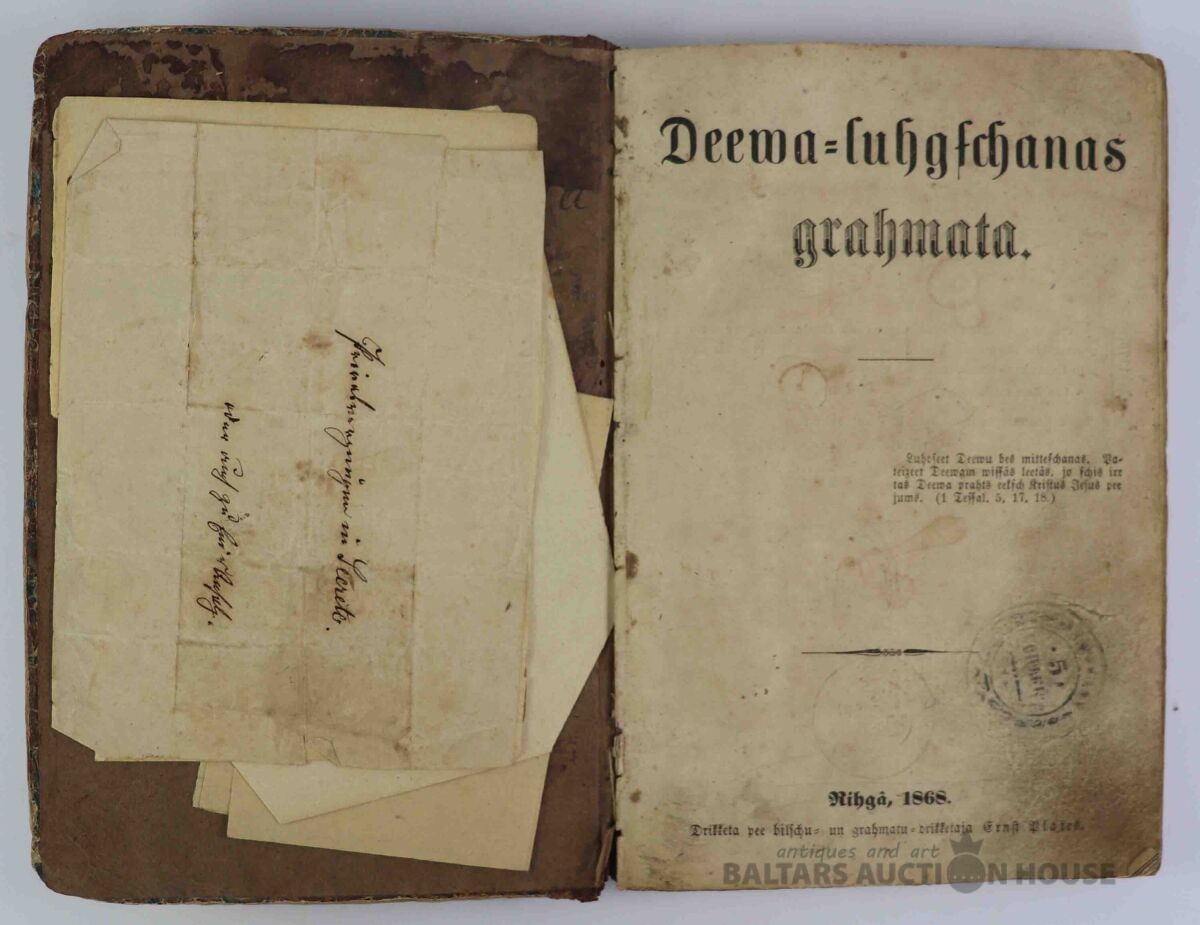 Deewa-luhgschanas
grahmata.
Luhdseet Deewu bes mitteschanas. Pa-
teizeet Deewam wissâs leetâs, jo schis irr
tas Deewa prahts eeksch Kristus Jesus pee
jums. (1 Tessal. 5, 17, 18.)
Rihgâ, 1868.
Drikketa pee bilschu- un grahmatu-drikketaja Ernst Plates.
in Secreto.
oder auf
5
antiques and art
BALTARS AUCTION HOUSE